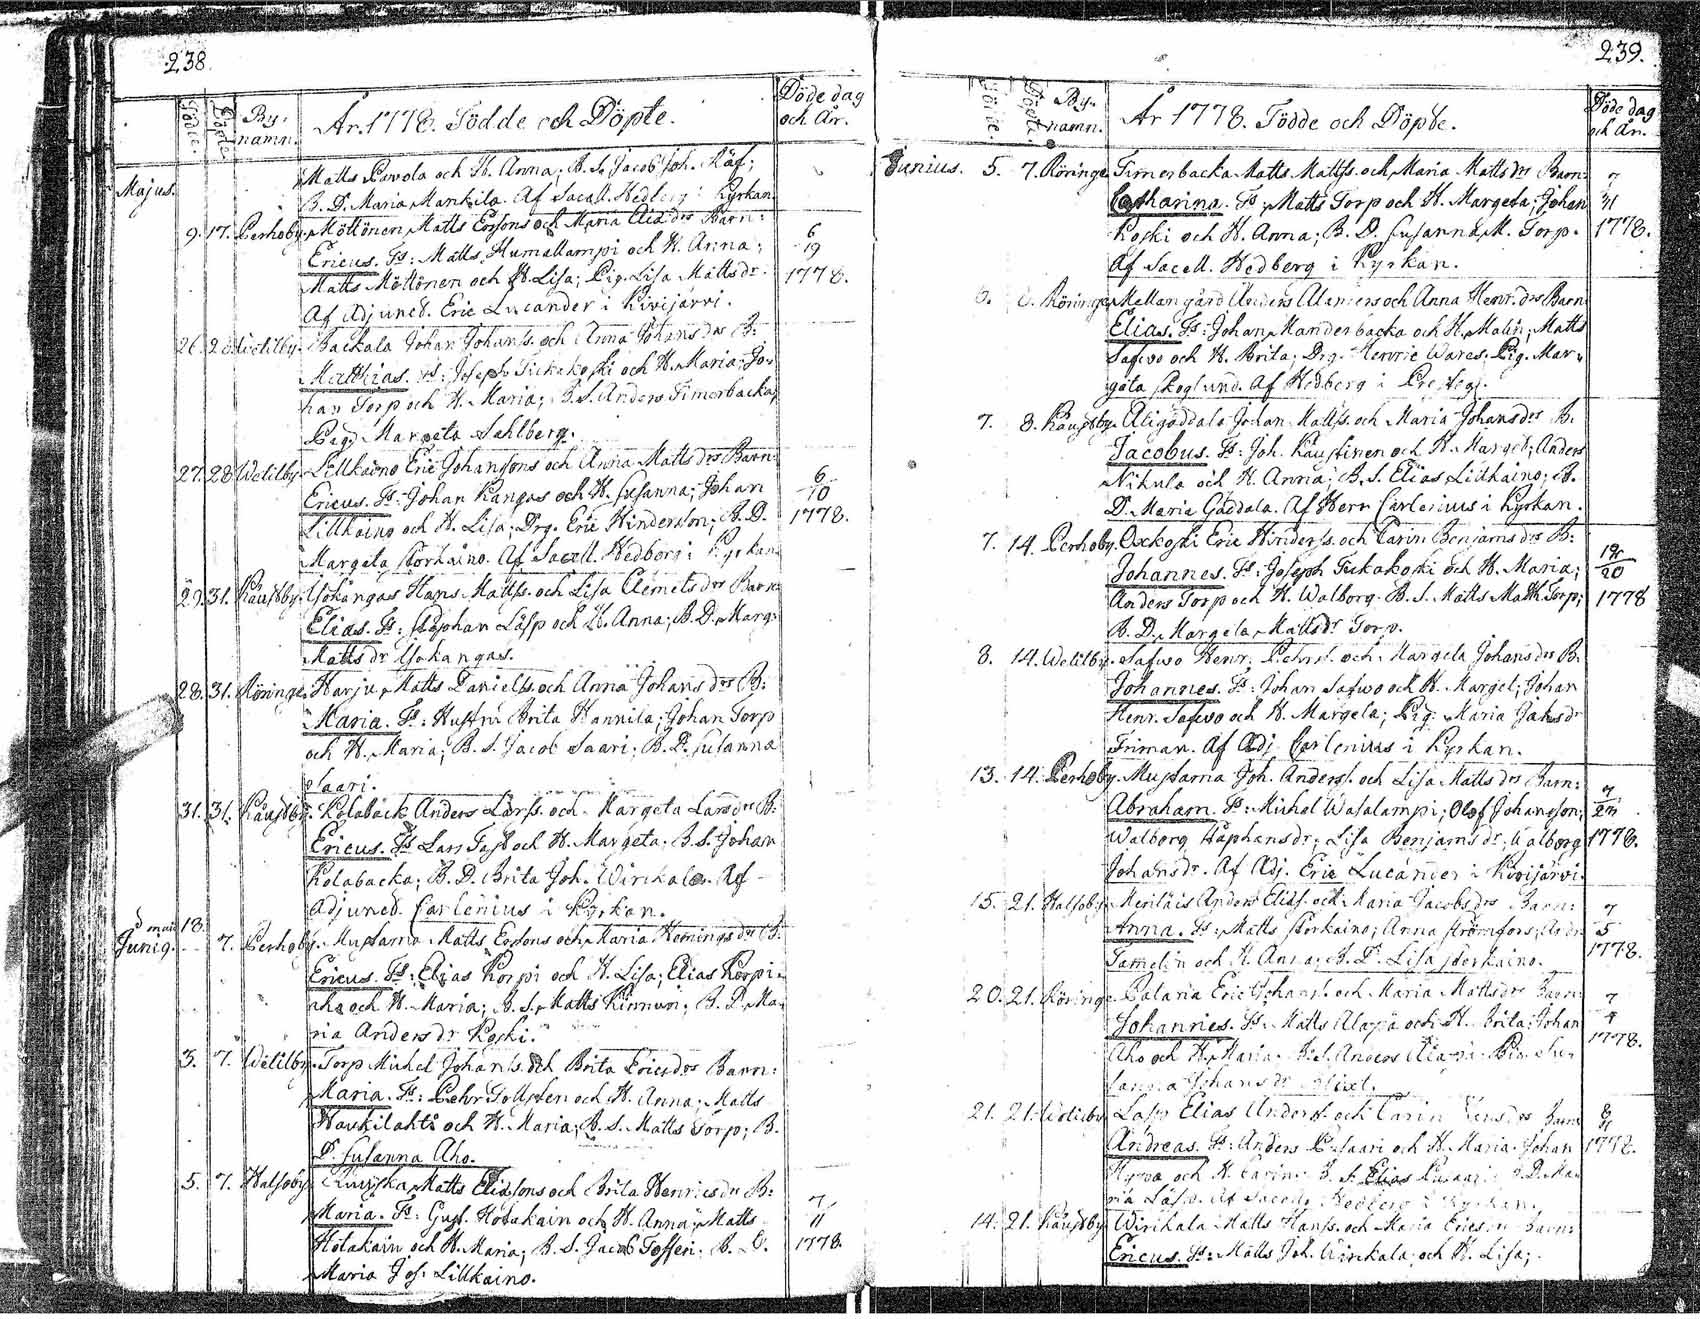 238
Födde. Döpte. By-namn. År. 1778. Födde och Döpte. Döde dag och År.
Majus.
Matts Pavola och H. Anna; B. S. Jacob Joh. Räf;
B. D. Maria Mankila. Af Sacell. Hedberg i Kyrkan
9. 17. Perhoby. Möttönen Matts Ersons och Maria dr Barn: 6
Ericus. Fs: Matts Humallampi och H. Anna; 19
Matts Möttönen och H. Lisa; Pig. Lisa Matts dr. 1778.
Af Adjunct. Eric Lucander i Kivijärvi.
26. Wetilby. Backala Johan Johans. och Anna Johans dr B:
Matthias. Fs: Joseph Tuckakoski och H. Maria; Jo-
han Torp och H. Maria; B. S. Anders Timerbacka;
Pig. Margeta Sahlberg.
27. 28 Wetilby. Lillkaino Eric Johansons och Anna Matts drs Barn: 6
Ericus. Fs: Johan Kangas och H. Susanna; Johan 10
Lillkaino och H. Lisa; Drg. Eric Hinderson; B. D. 1778.
Margeta Storkaino. Af Sacell. Hedberg i Kyrkan
29. 31. Käustby. Ysokangas Hans Matts. och Lisa Clemets dr Barn
Elias. Fs: Johan Läsp och H. Anna; B. D. Marg:
Matts dr Ysokangas.
28. 31. Röringe. Harju Matts Daniels. och Anna Johans drs B:
Maria. Fs: Hustru Brita Hannila; Johan Torp
och H. Maria; B. S. Jacob Saari; B. D. Susanna
Saari.
31. 31. Käustby. Kolaback Anders Lars. och Margeta Lars dr B:
Ericus. Fs Lars Tast och H. Margeta; B. S. Johan
Kolabacka; B. D. Brita Joh. Wirkala. Af
Adjunct. Carlenius i Kyrkan.
d mai 18.
Junig. 7. Perhoby. Mustama Matts Ersons och Maria Hennings dr B:
Ericus. Fs: Elias Korpi och H. Lisa; Elias Korpi-
aho och H. Maria; B. S. Matts Kinnun; B. D. Ma-
ria Anders dr Koski.
3. 7. Wetilby. Torp Michel Johans. och Brita Erics drs Barn:
Maria. Fs: Pehr Gollsten och H. Anna; Matts
Haukilahti och H. Maria; B. S. Matts Torp; B.
D. Susanna Aho.
5. 7. Halsoby Matts Eliasons och Brita Henrics dr B: 7
Maria. Fs: Gust. Hotakain och H. Anna; Matts 11
Hotakain och H. Maria; B. S. Jacob Tofferi. B. D. 1778.
Maria Jos: Lillkaino.
239.
Födde. Döpte. By-namn. År 1778. Födde och Döpte. Döde dag och År.
Junius. 5. 7. Röringe Timerbacka Matts Matts. och Maria Matts drs Barn: 7
Catharina. Fs: Matts Torp och H. Margeta; Johan 31
Koski och H. Anna; B. D. Susanna M. Torp. 1778.
Af Sacell. Hedberg i Kyrkan.
6. Röringe Mellangård Anders Anders och Anna Henr. drs Barn
Elias. Fs: Johan Manderbacka och H. Malin; Matts
Safwo och H. Brita; Drg. Henric Wares. Pig. Mar-
geta Skoglund. Af Hedberg i
7. 8. Käustby. Aligäddala Johan Matts. och Maria Johans drs B.
Jacobus. Fs: Joh. Kaustinen och H. Marget; Anders
Nikula och H. Anna; B. S. Elias Lillkaino; B.
D. Maria Gäddala. Af Herr Carlenius i Kyrkan.
7. 14. Perhoby. Oxkoski Eric Hinders. och Carin Benjams drs B:
Johannes. Fs: Joseph Tuckakoski och H. Maria; 20
Anders Torp och H. Walborg. B. S. Matts Matth. Torp; 1778
B. D. Margeta Matts dr Torp.
8. 14. Wetilby. Safwo Henr. Pehrs. och Margeta Johans drs B.
Johannes. Fs: Johan Safwo och H. Marget; Johan
Henr. Safwo och H. Margeta; Pig. Maria dr
Friman. Af Adj. Carlenius i Kyrkan.
13. 14. Perhoby. Mustama Joh. Anders. och Lisa Matts drs Barn: 7
Abraham. Fs: Michel Wasalampi; Olof Johansson; 23
Walborg Staphans dr; Lisa Benjams dr; Walborg 1778.
Johans dr. Af Adj. Eric Lucander i Kivijärvi.
15. 21. Halsoby. Meriläis Anders Elias. och Maria Jacobs drs Barn: 7
Anna. Fs: Matts Storkaino; Anna Strömfors; 5
Tamelin och H. Anna; B. D. Lisa Storkaino. 1778.
20. 21. Röringe Palaria Eric Johans. och Maria Matts drs Barn: 7
Johannes. Fs: Matts Alapä och H. Brita; Johan 4
Aho och H. Maria. B. S. Anders Pig. Su- 1778.
sanna Johans dr
21. 21. Wetilby Läsp Elias Anders. och Carin drs Barn 8
Andreas. Fs: Anders Pusaari och H. Maria. Johan 1778.
och H. Carin. B. S. Elias Pusaari. B. D. Ma-
ria Läsp. Af Sacell. Hedberg i Kyrkan.
14. 21. Käustby Wirikala Matts Hans. och Maria Erics dr Barn:
Ericus. Fs: Matts Joh. Wirikala och H. Lisa;